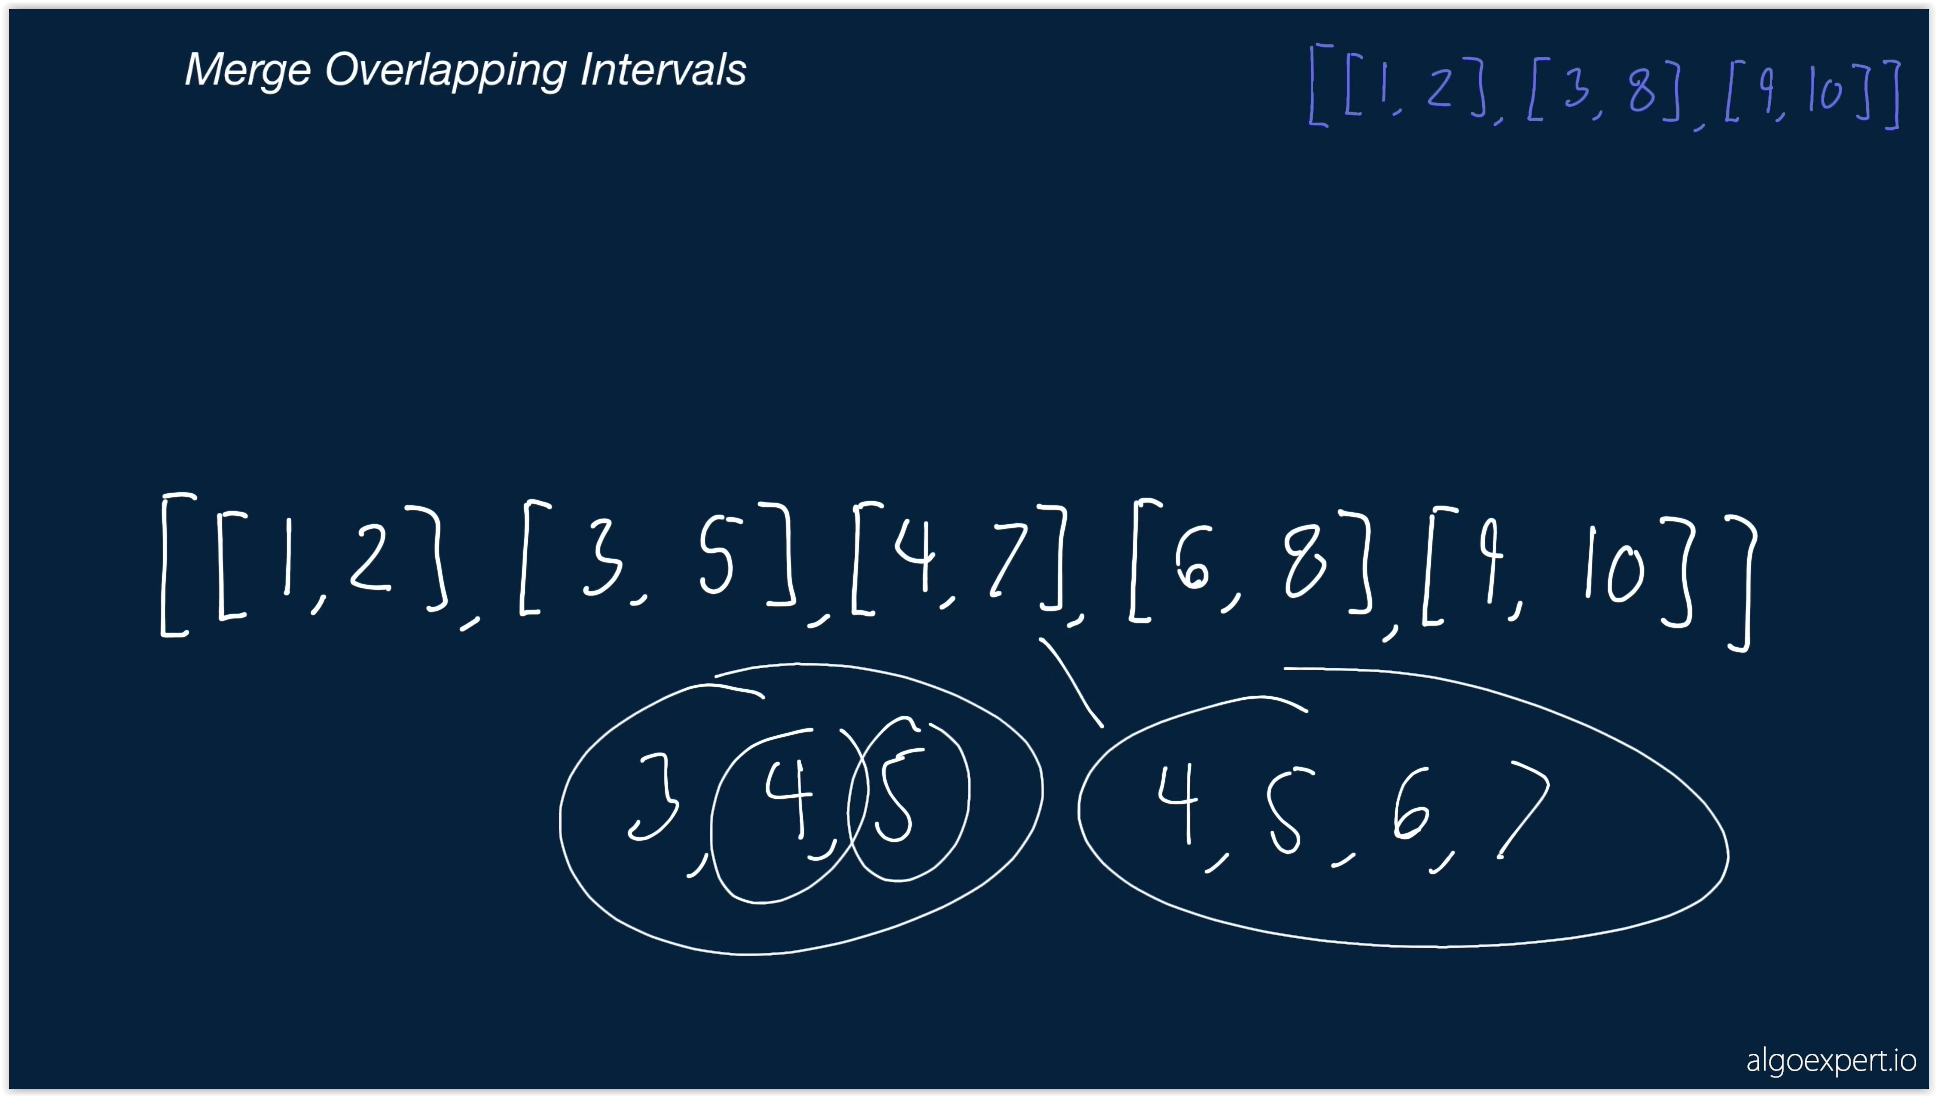 Merge Overlapping Intervals
[[1, 2], [3, 8], [9, 10]]
[[1,2], [3, 5], [4,7], [6, 8], [9, 10]]
3, 4, 5
4, 5, 6, 7
algoexpert.io